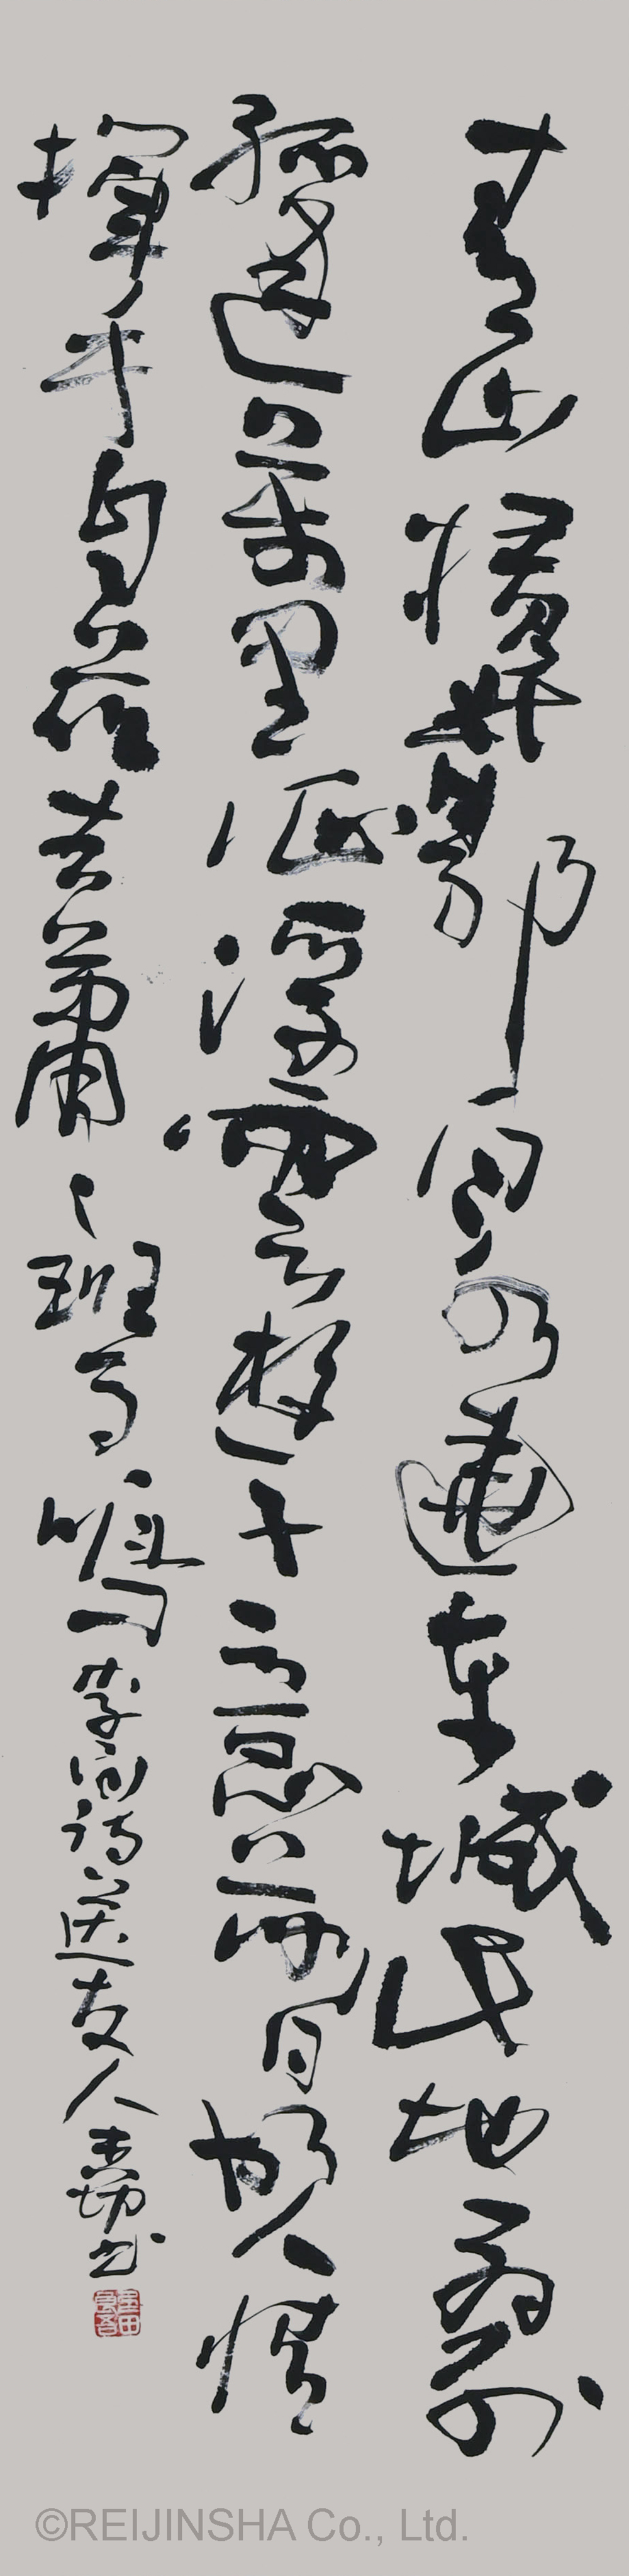 青山横北郭白水遶東城此地一為別
孤蓬萬里征浮雲遊子意落日故人情
揮手自茲去蕭々班馬鳴 李白詩送友人 书
©REIJINSHA Co., Ltd.